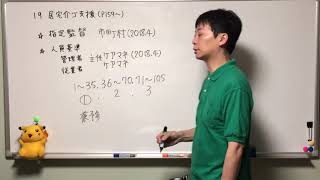 19 居宅介ゴ支援 (P159~)
☆ 指定監督 市町村(2018.4)
☆ 人員基準
管理者 主任ケアマネ(2018.4)
従業者 ケアマネ
1~35, 36~70, 71~105
① . 2 . 3
兼務